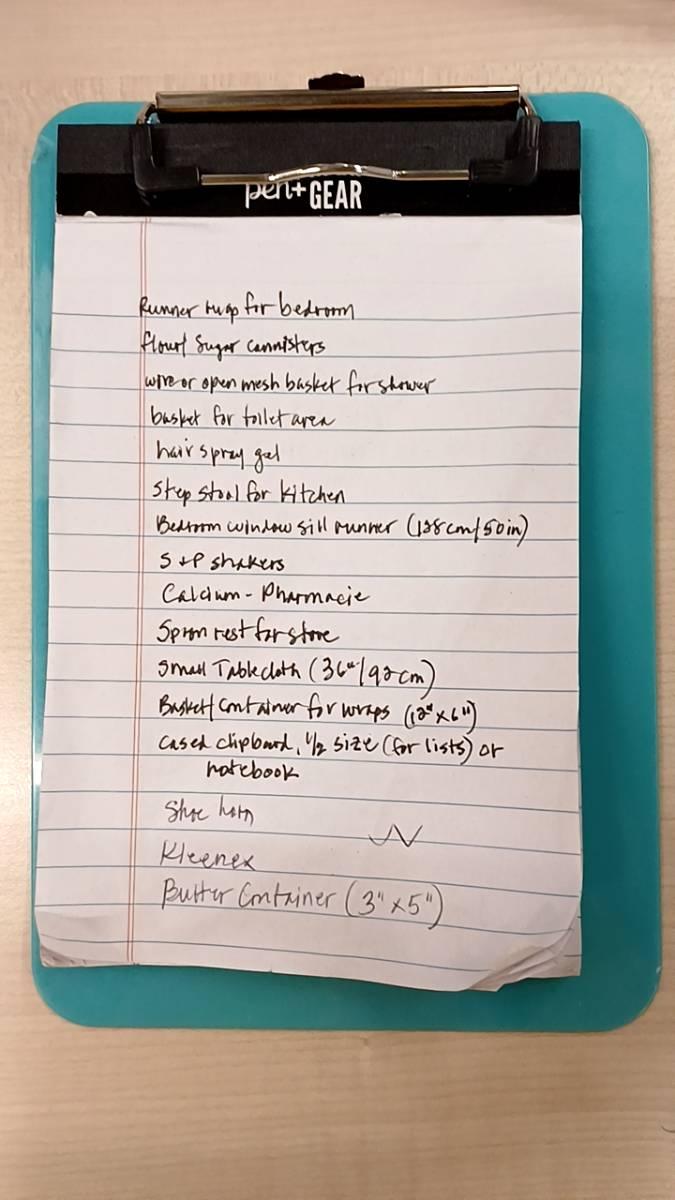 pen+GEAR
Runner rugs for bedroom
flour/ Sugar cannisters
wire or open mesh basket for shower
basket for toilet area
hair spray gel
Step stool for kitchen
Bedroom window sill runner (128cm/50in)
S+P shakers
Calcium - Pharmacie
Spoon rest for stove
Small Tablecloth (36"/92cm)
Basket/Container for wraps (12" x 6")
Cased clipboard, 1/2 size (for lists) or
notebook
Shoe horn
Kleenex
Butter Container (3" x 5")